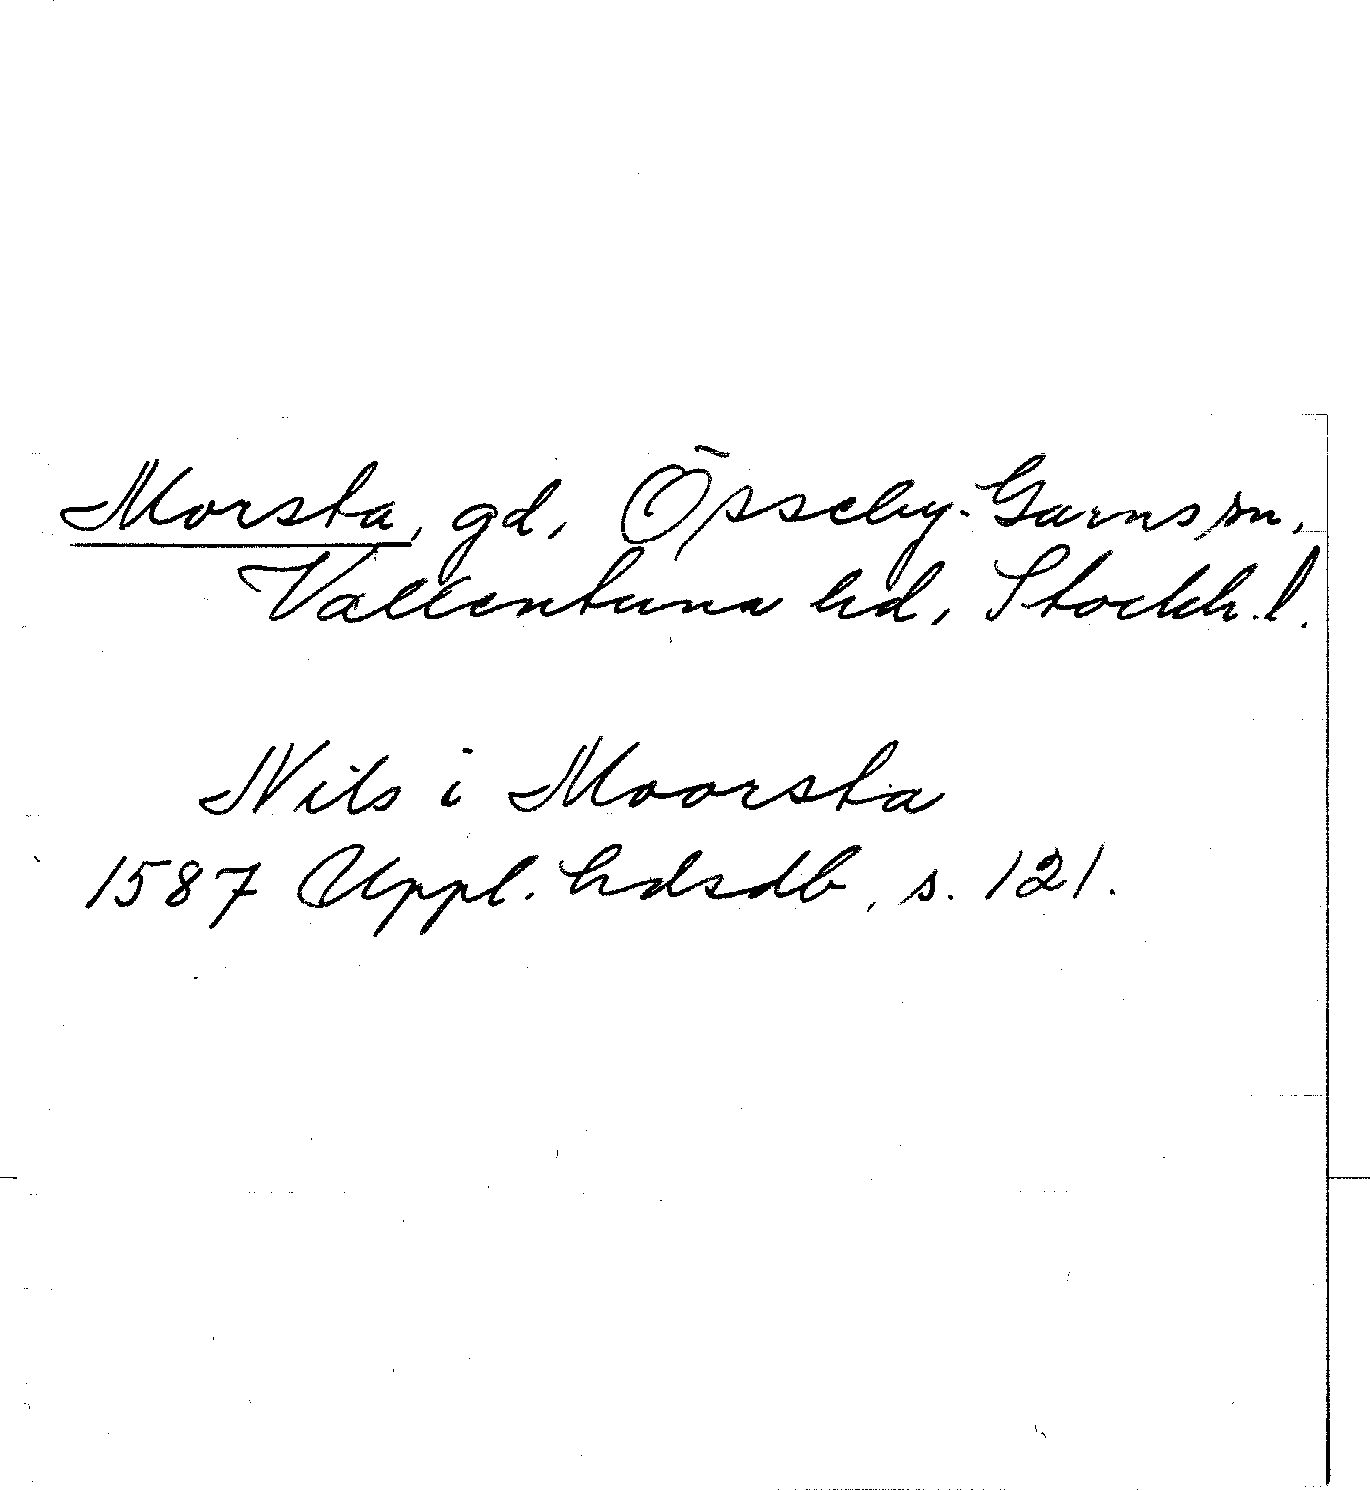 Morsta, gd, Össeby-Garns sn,
Vallentuna hd, Stockh. l.
Nils i Moorsta
1587 Uppl. hdsdb, s. 121.